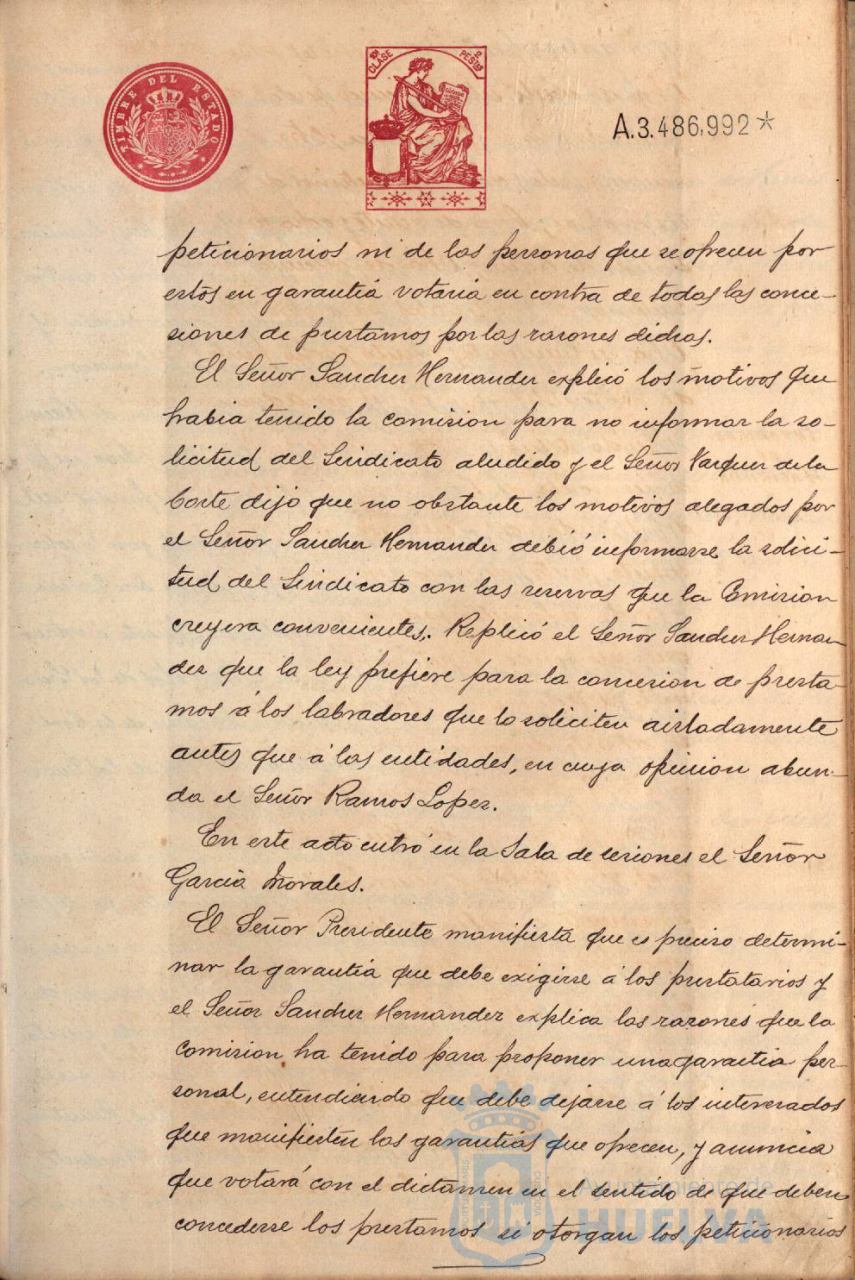 TIMBRE DEL ESTADO
10ª CLASE
2 PESTAS
A.3.486,992*
peticionarios ni de las personas que se ofrecen por
estos en garantiá votaria en contra de todas las conce-
siones de prestamos por las razones dichas.
El Señor Sanchez Hernandez explicó los motivos que
habia tenido la comision para no informar la so-
licitud del Sindicato aludido y el Señor Vazquez de la
Corte dijo que no obstante los motivos alegados por
el Señor Sanchez Hernandez debió informarse la solici-
tud del Sindicato con las reservas que la Comision
creyera convenientes. Replicó el Señor Sanchez Hernan-
dez que la ley prefiere para la concesion de presta-
mos á los labradores que lo soliciten aisladamente
antes que á las entidades, en cuya opinion abun-
da el Señor Ramos Lopez.
En este acto entró en la Sala de sesiones el Señor
García Morales.
El Señor Presidente manifiesta que es preciso determi-
nar la garantia que debe exigirse á los prestatarios y
el Señor Sanchez Hernandez explica las razones que la
comision ha tenido para proponer una garantia per-
sonal, entendiendo que debe dejarse á los interesados
que manifiesten las garantias que ofrecen, y anuncia
que votará con el dictamen en el sentido de que deben
concederse los prestamos si otorgan los peticionarios
Ayuntamiento de
HUELVA